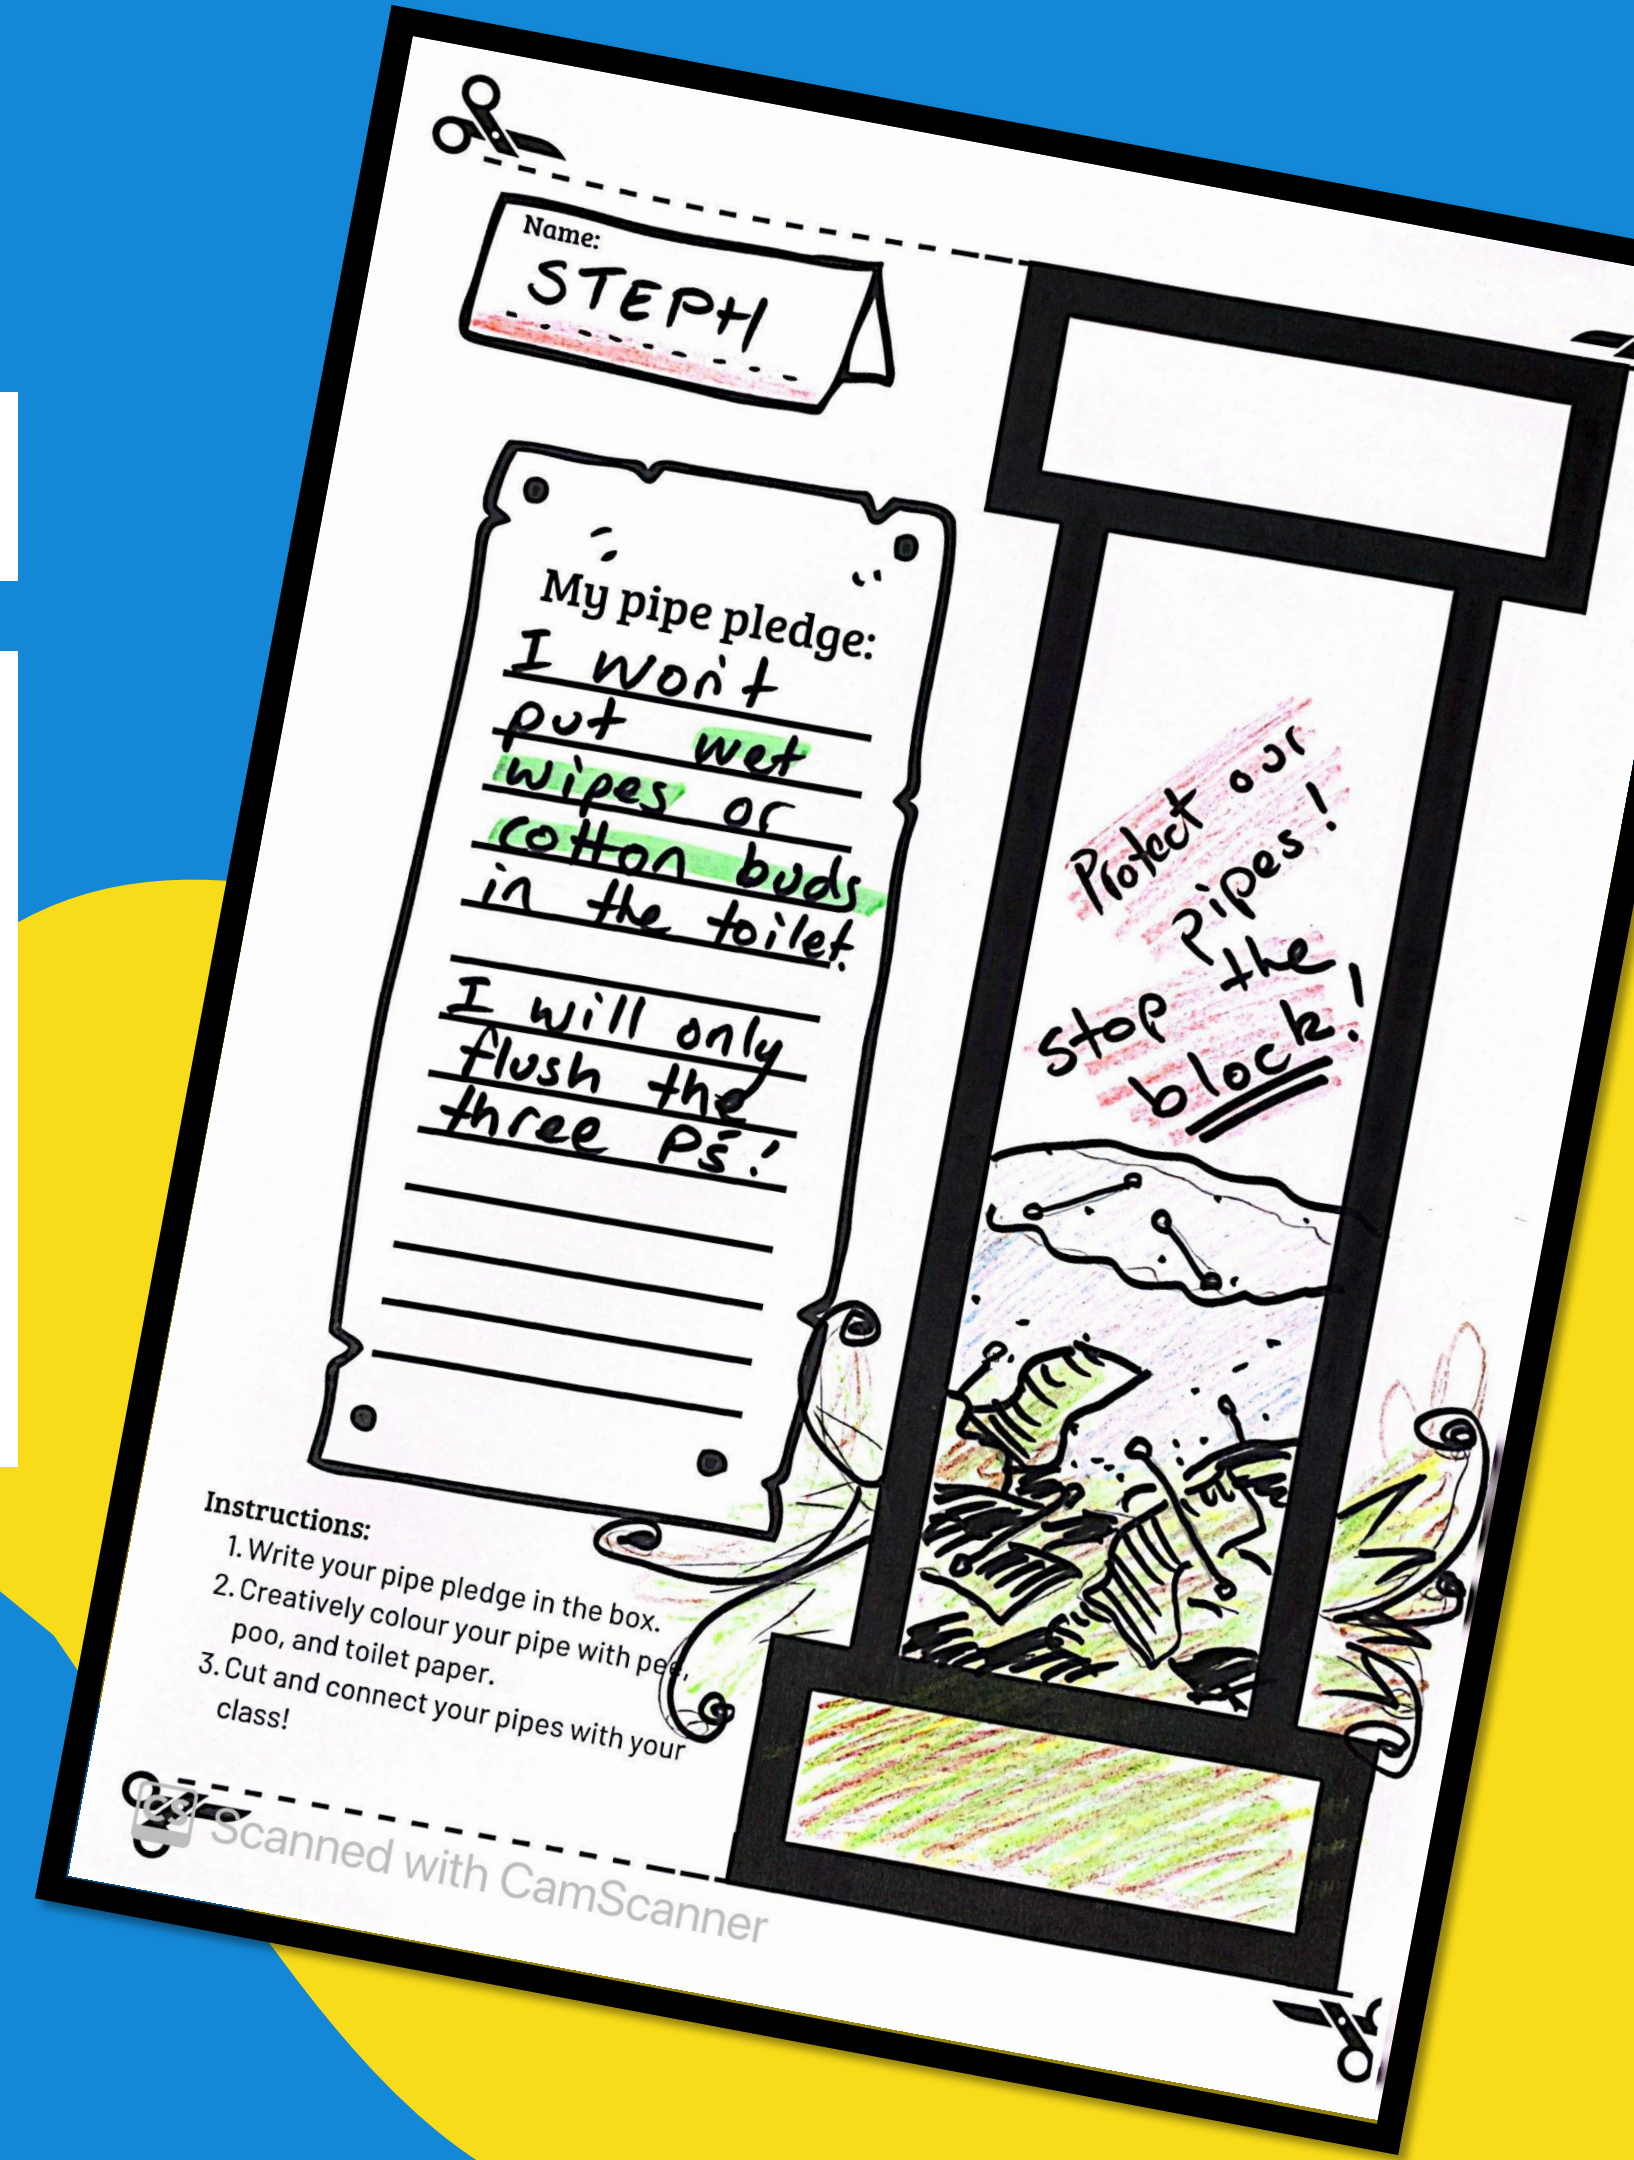 Name:
STEPH
My pipe pledge:
I won't
put wet
wipes or
cotton buds
in the toilet.
I will only
flush the
three Ps!
Protect our
pipes!
Stop the
block!
Instructions:
1. Write your pipe pledge in the box.
2. Creatively colour your pipe with pee,
poo, and toilet paper.
3. Cut and connect your pipes with your
class!
CS Scanned with CamScanner